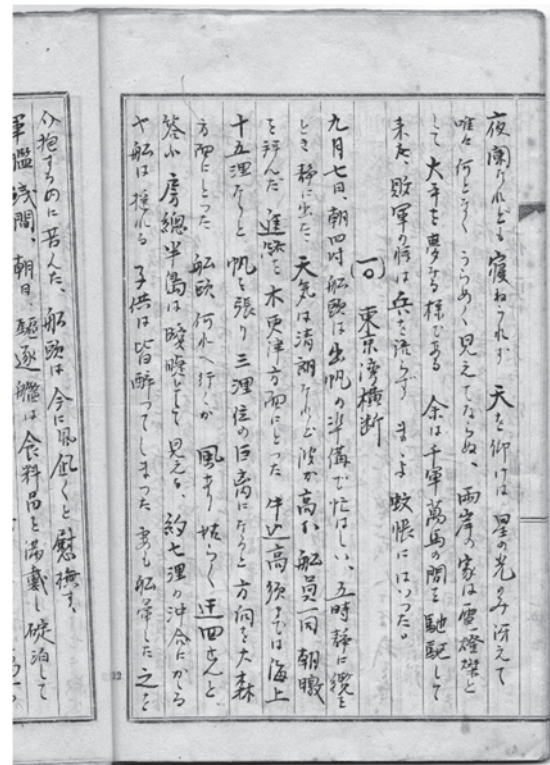 夜闌なれども寝ねられず 天を仰けは星の光のみ冴えて
唯に何となくうらめしく見えてならぬ、両岸の家は電燈燦と
して 太平を夢みる様である 余は千軍萬馬の間を馳駆して
来た、敗軍の将は兵を語らず まゝよ 蚊帳にはいつた。
(一) 東京湾横断
九月七日、朝四時 船頭は出帆の準備で忙はしい、五時静に纜を
とき静に出た、天気は清朗なれど波か高い 船員一同 朝暾
を拝んだ 進路を木更津方面にとつた 高須までは海上
十五浬ならと 帆を張り 三浬位の距離になると 方向を大森
方面にとつた 船頭 何れへ行くか 風まり 姑らく 四さんと
答ふ 房總半島は曖曖として見える、約七浬の沖合にかゝる
や船は揺れる 子供は皆酔つてしまつた 妻も船暈した 之を
介抱するのに苦んだ、船頭は今に風凪くと慰撫す、
軍艦浅間、朝日、駆逐艦は食料品を満載し碇泊して
12